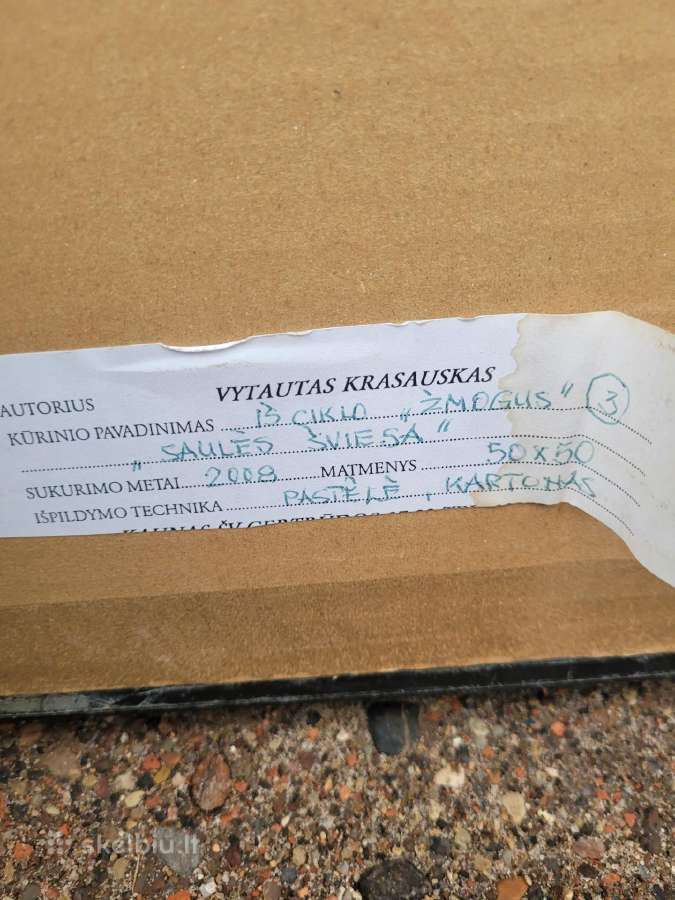 AUTORIUS VYTAUTAS KRASAUSKAS
KŪRINIO PAVADINIMAS IŠ CIKLO „ŽMOGUS" 3
„SAULĖS ŠVIESA"
SUKŪRIMO METAI 2008 MATMENYS 50x50
IŠPILDYMO TECHNIKA PASTĖLĖ, KARTONAS
KAUNAS ŠV. GERTRŪDOS
skelbiu.lt